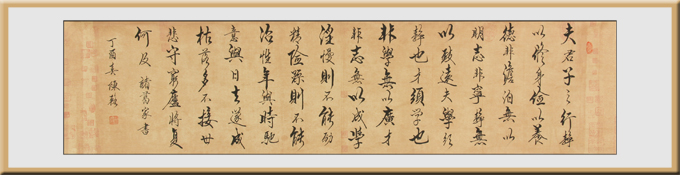 夫君子之行静
以修身俭以養
德非澹泊無以
明志非寧静無
以致遠夫學须
静也才须學也
非學無以廣才
非志無以成學
淫慢則不能励
精险躁則不能
治性年與時馳
意與日去遂成
枯落多不接世
悲守窮廬將復
何及 諸葛家書
丁酉